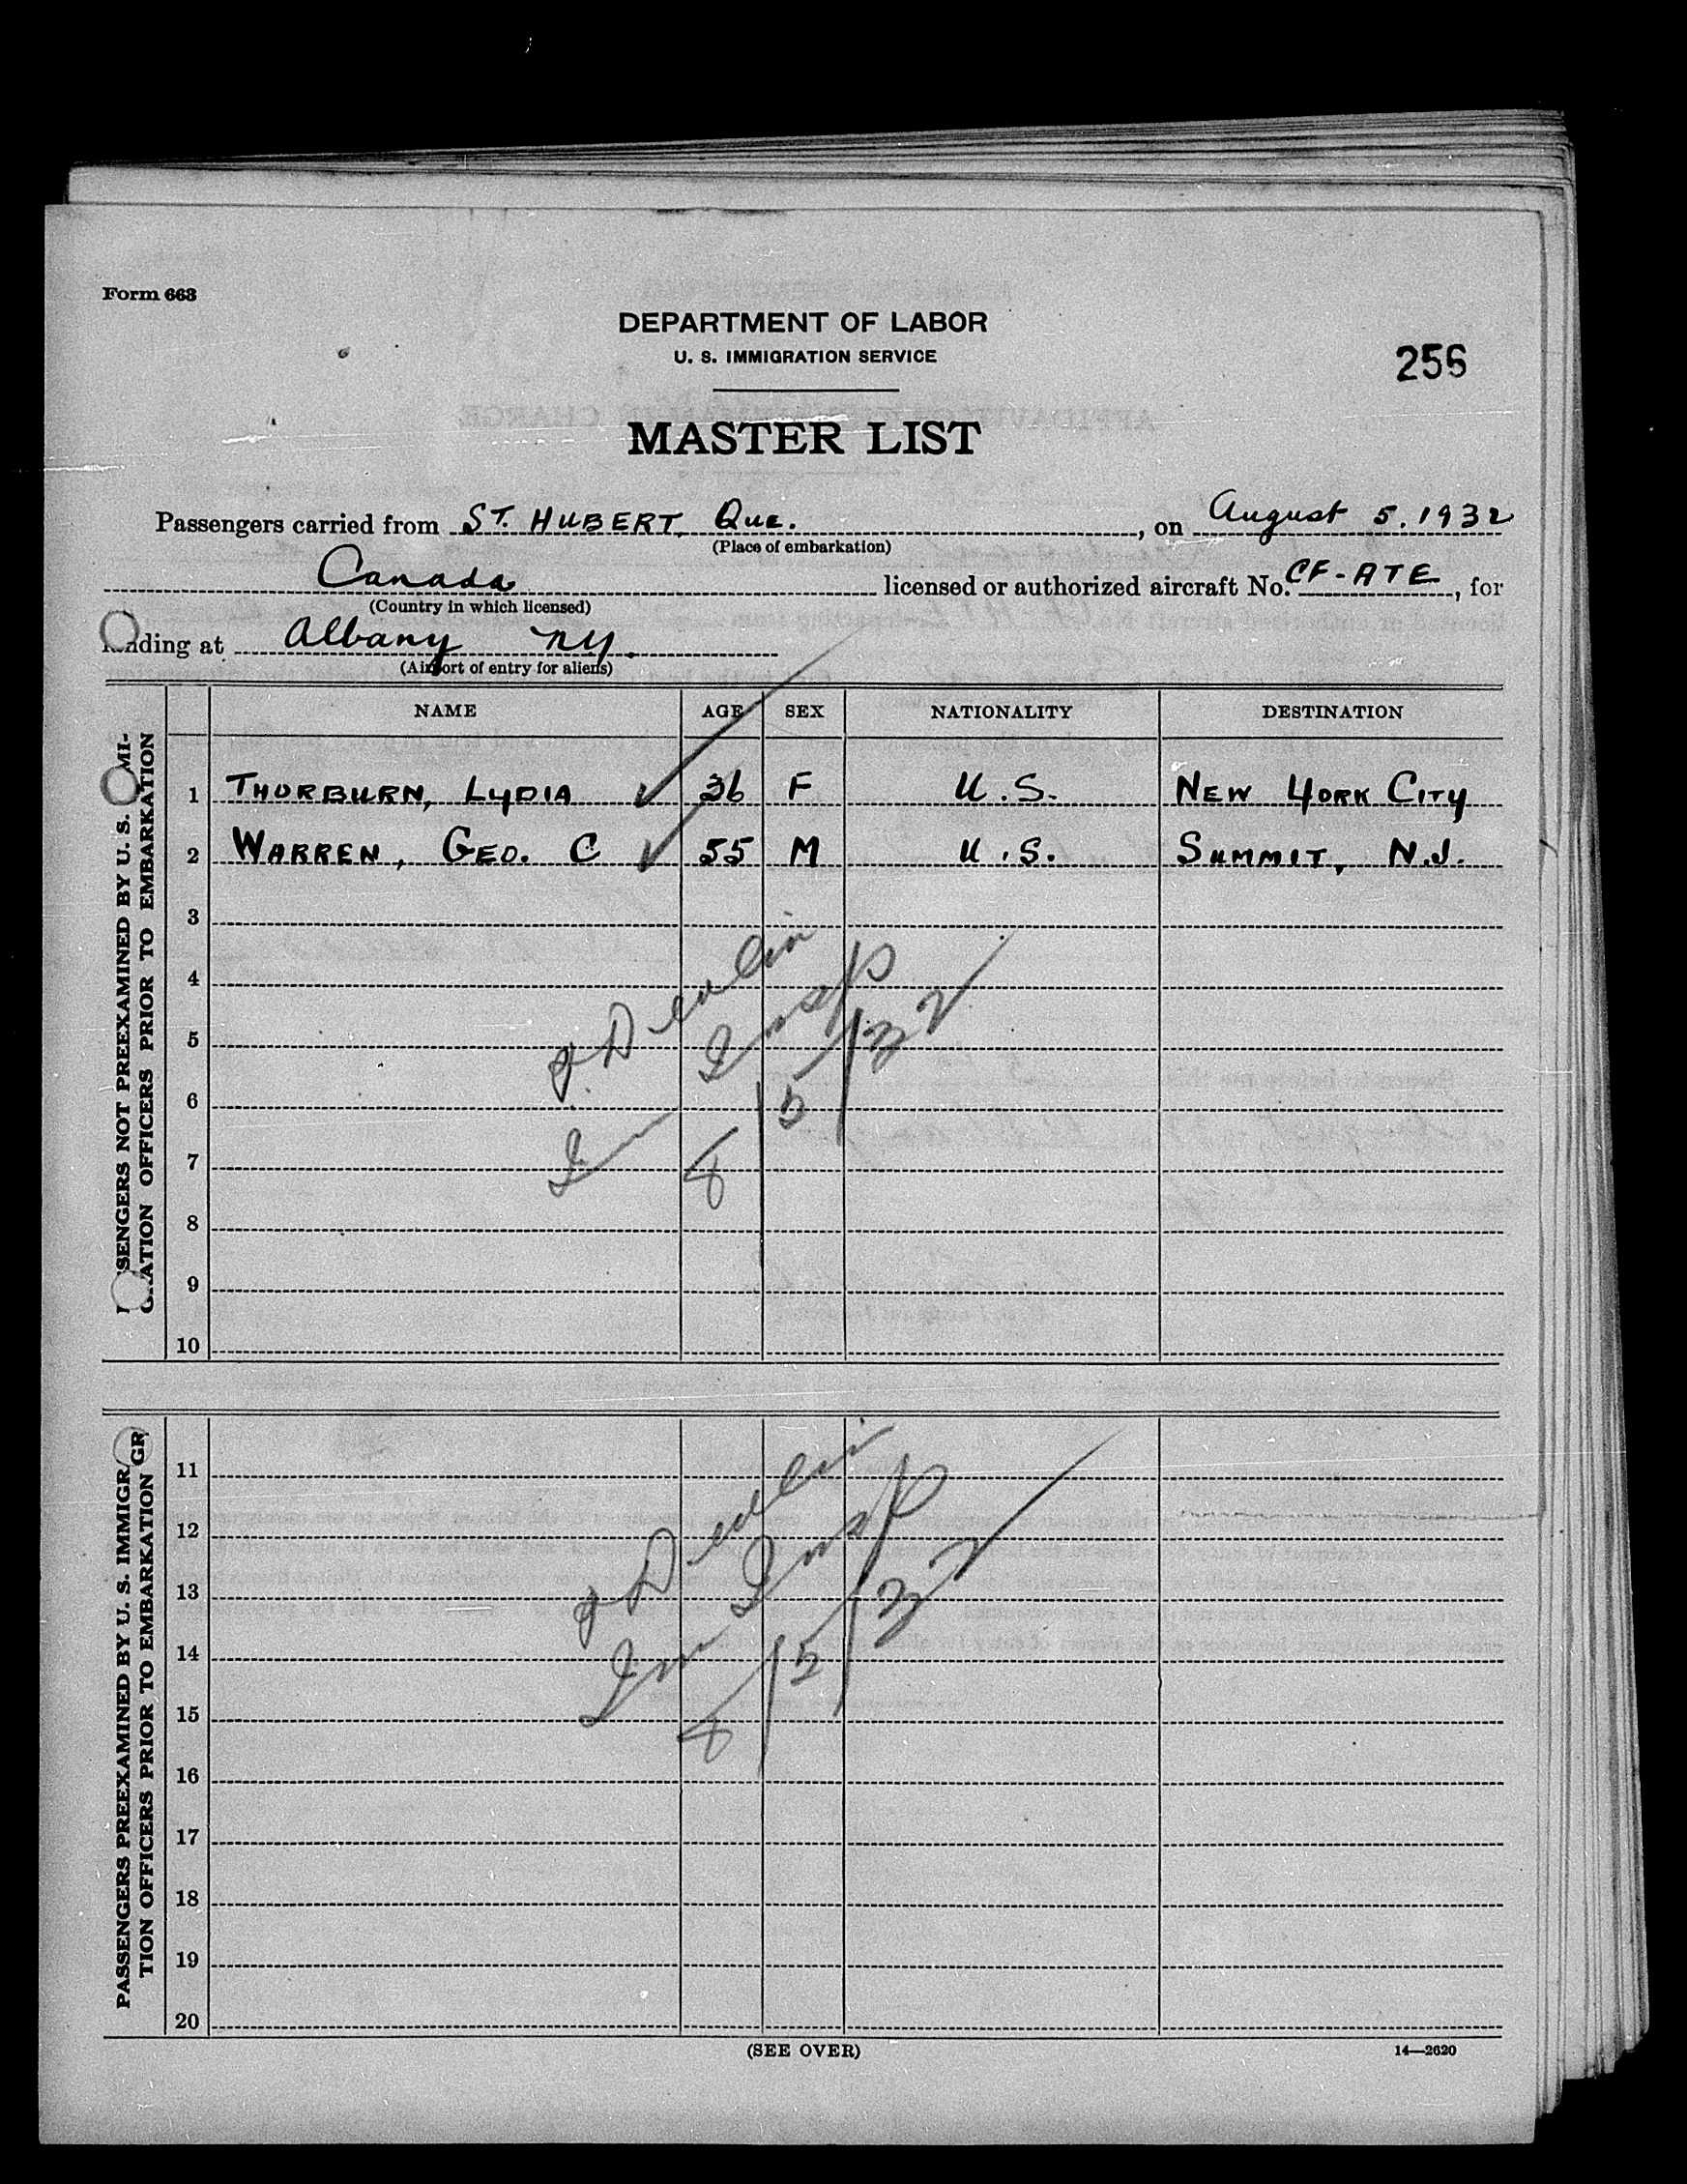 Form 663
DEPARTMENT OF LABOR
U. S. IMMIGRATION SERVICE
256
MASTER LIST
Passengers carried from ST. HUBERT, Que. , on August 5. 1932
(Place of embarkation)
Canada licensed or authorized aircraft No. CF-ATE , for
(Country in which licensed)
nding at Albany NY.
(Airport of entry for aliens)
NAME AGE SEX NATIONALITY DESTINATION
SENGERS NOT PREEXAMINED BY U. S. MI-
ATION OFFICERS PRIOR TO EMBARKATION
1 THORBURN, LYDIA ✓ 36 F U.S. NEW YORK CITY
2 WARREN, GEO. C ✓ 55 M U.S. SUMMIT, N.J.
3
4
5
6
7
8
9
10
J. Devlin
Im Insp
8/5/32
PASSENGERS PREEXAMINED BY U. S. IMMIGR
TION OFFICERS PRIOR TO EMBARKATION
11
12
13
14
15
16
17
18
19
20
J Devlin
Im Insp
8/5/32
(SEE OVER)
14—2620